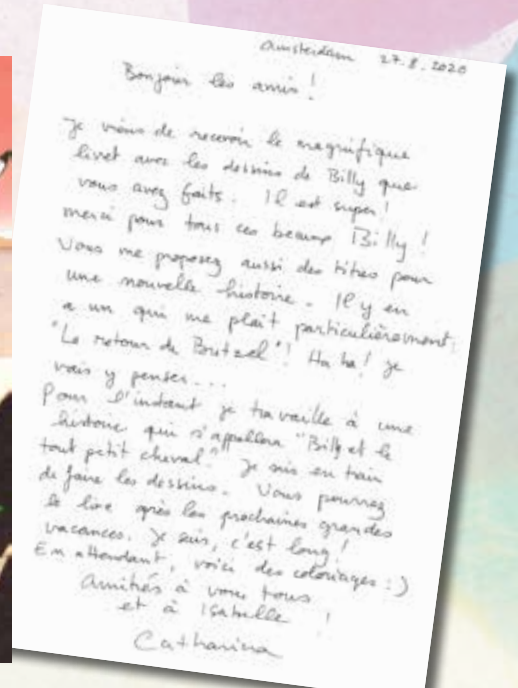 Amsterdam 27.8.2020
Bonjour les amis !
Je viens de recevoir le magnifique
livret avec les dessins de Billy que
vous avez faits. Il est super !
merci pour tous ces beaux Billy !
Vous me proposez aussi des titres pour
une nouvelle histoire. Il y en
a un qui me plaît particulièrement :
"Le retour de Brutzel" ! Ha ha ! Je
vais y penser...
Pour l'instant je travaille à une
histoire qui s'appellera "Billy et le
tout petit cheval." Je suis en train
de faire les dessins. Vous pourrez
le lire après les prochaines grandes
vacances. Je sais, c'est long !
En attendant, voici des coloriages :)
Amitiés à vous tous
et à Isabelle !
Catharina